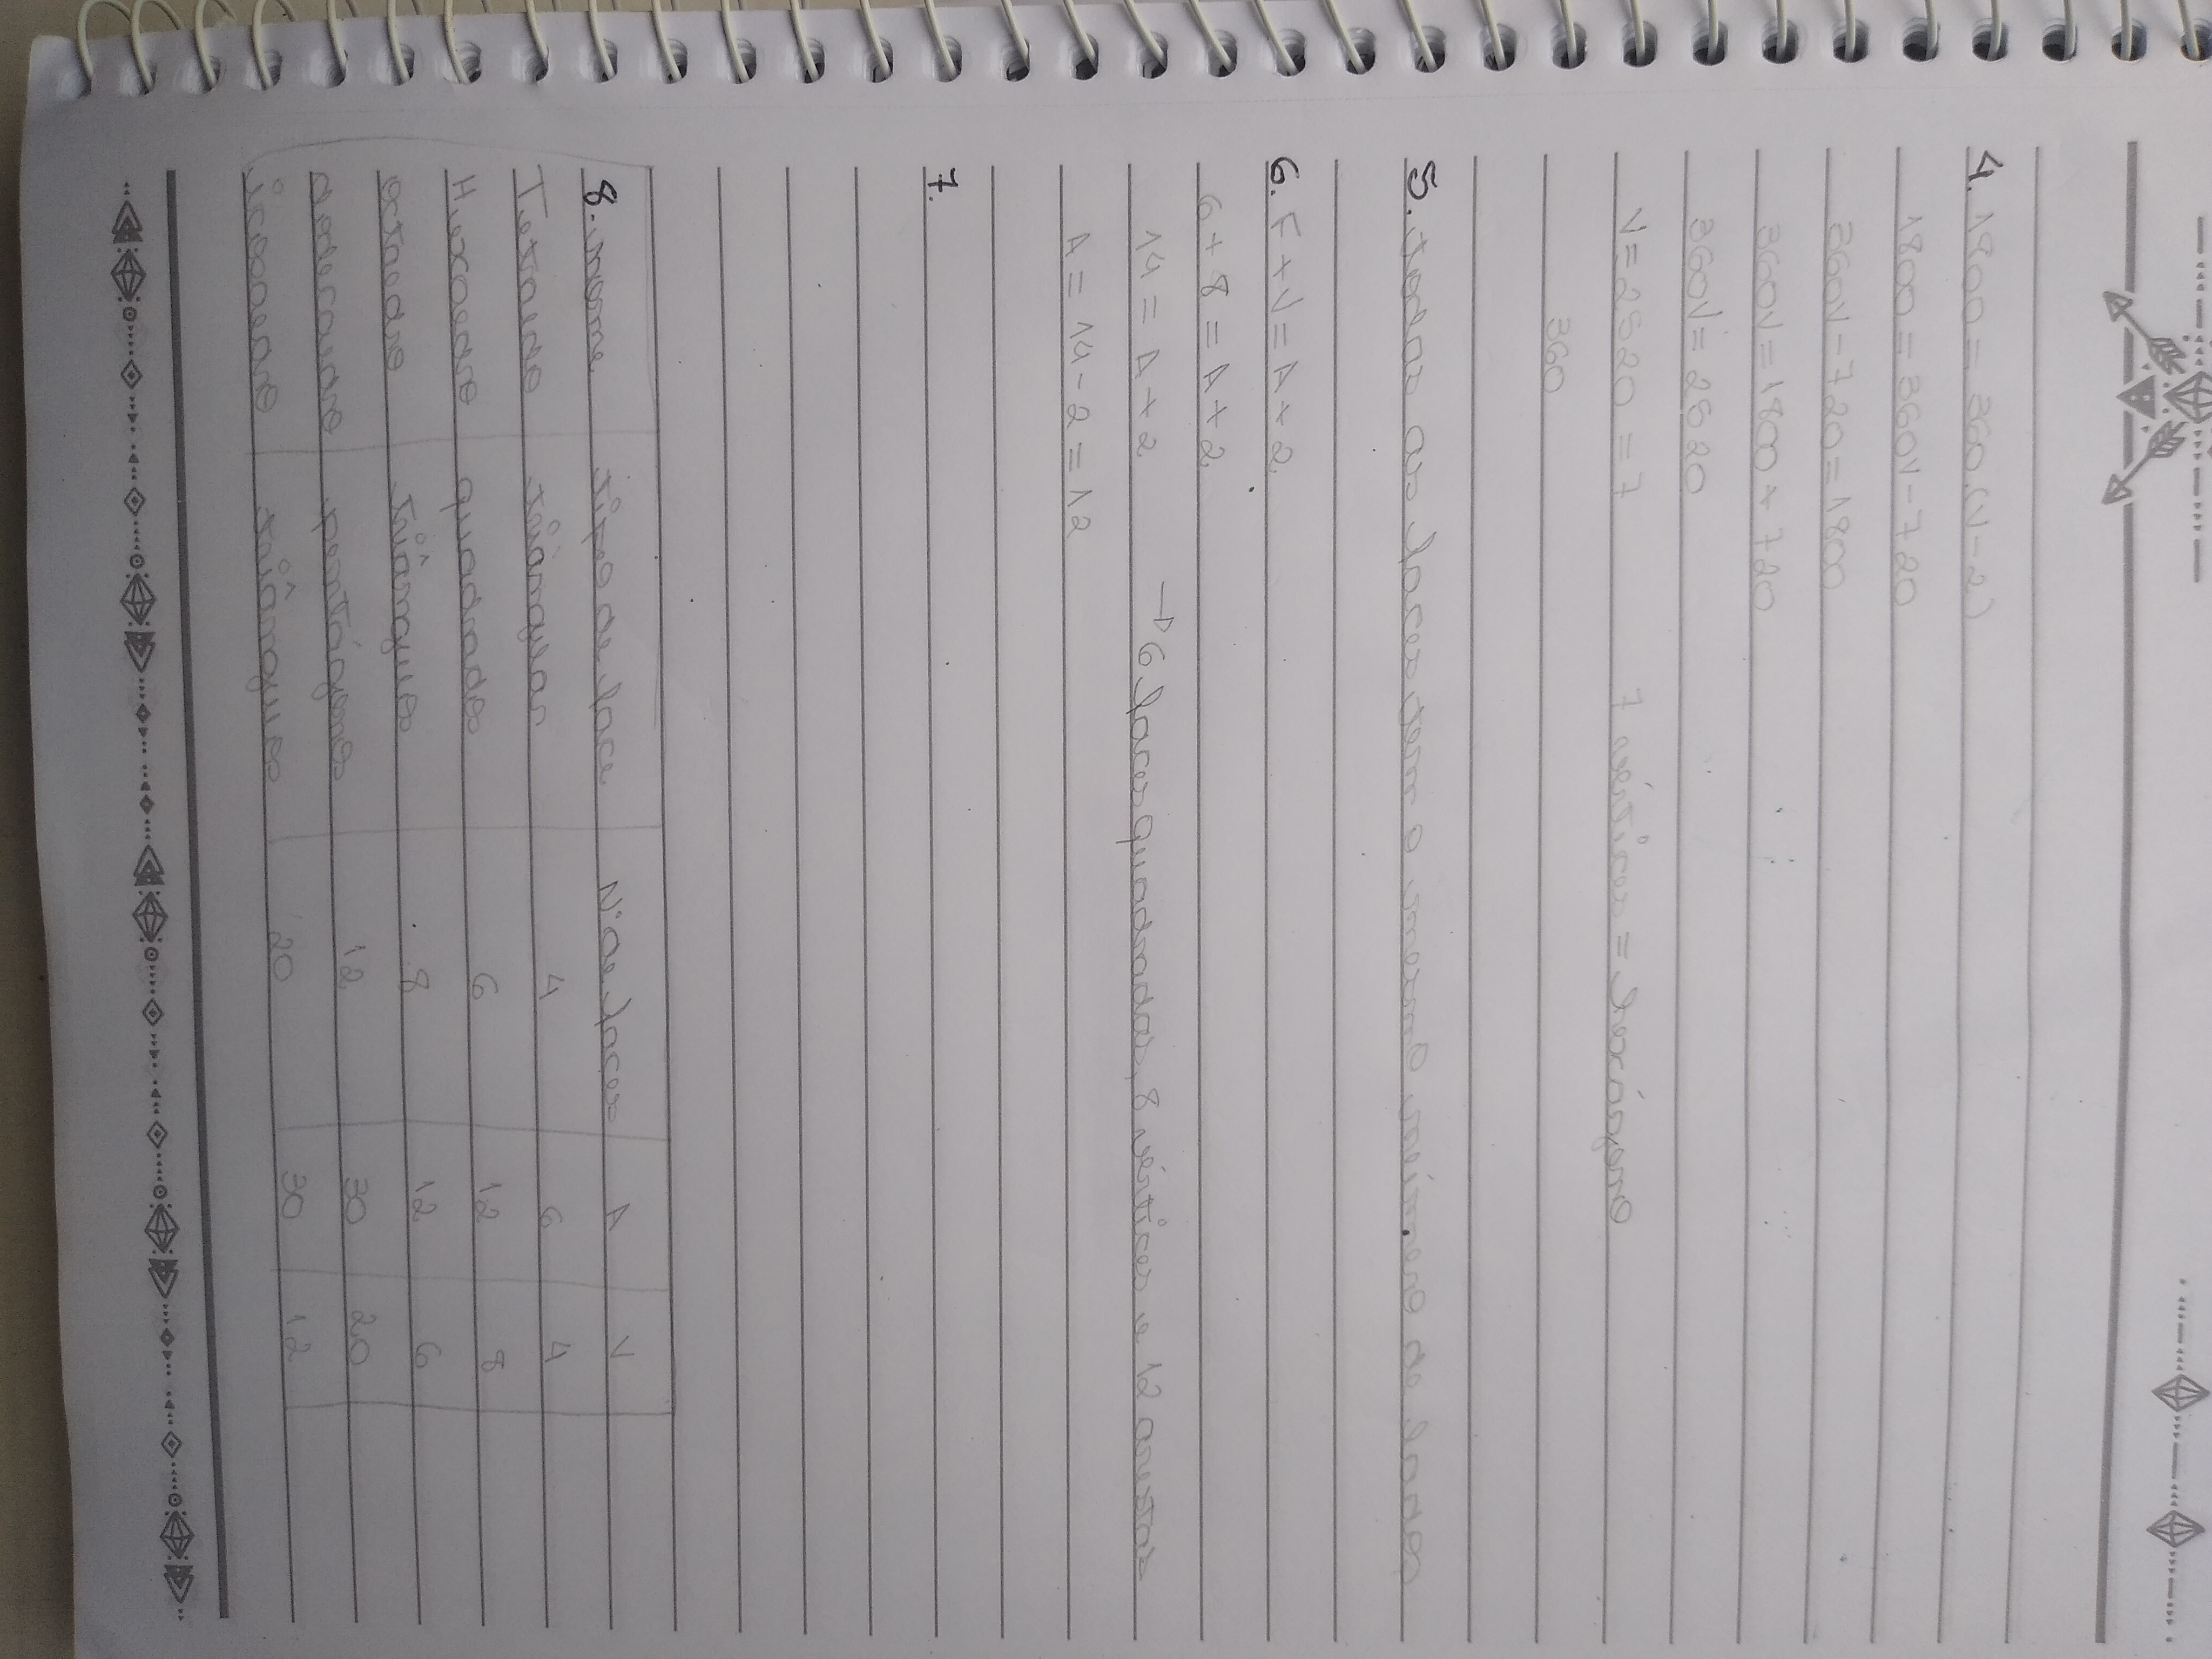 4. 1800 = 360.(V-2)
1800 = 360V - 720
360V - 720 = 1800
360V = 1800 + 720
360V = 2520
V = 2520 = 7 7 vértices = hexágono
360
5. todas as faces tem o mesmo número de lados
6. F + V = A + 2
6 + 8 = A + 2
14 = A + 2 → 6 faces quadradas, 8 vértices e 12 arestas
A = 14 - 2 = 12
7.
8. nome tipo de face N° de faces A V
Tetraedo triângular 4 6 4
Hexaedro quadrado 6 12 8
octaedro triânguos 8 12 6
dodecaedro pentágono 12 30 20
icosaedro triânguos 20 30 12